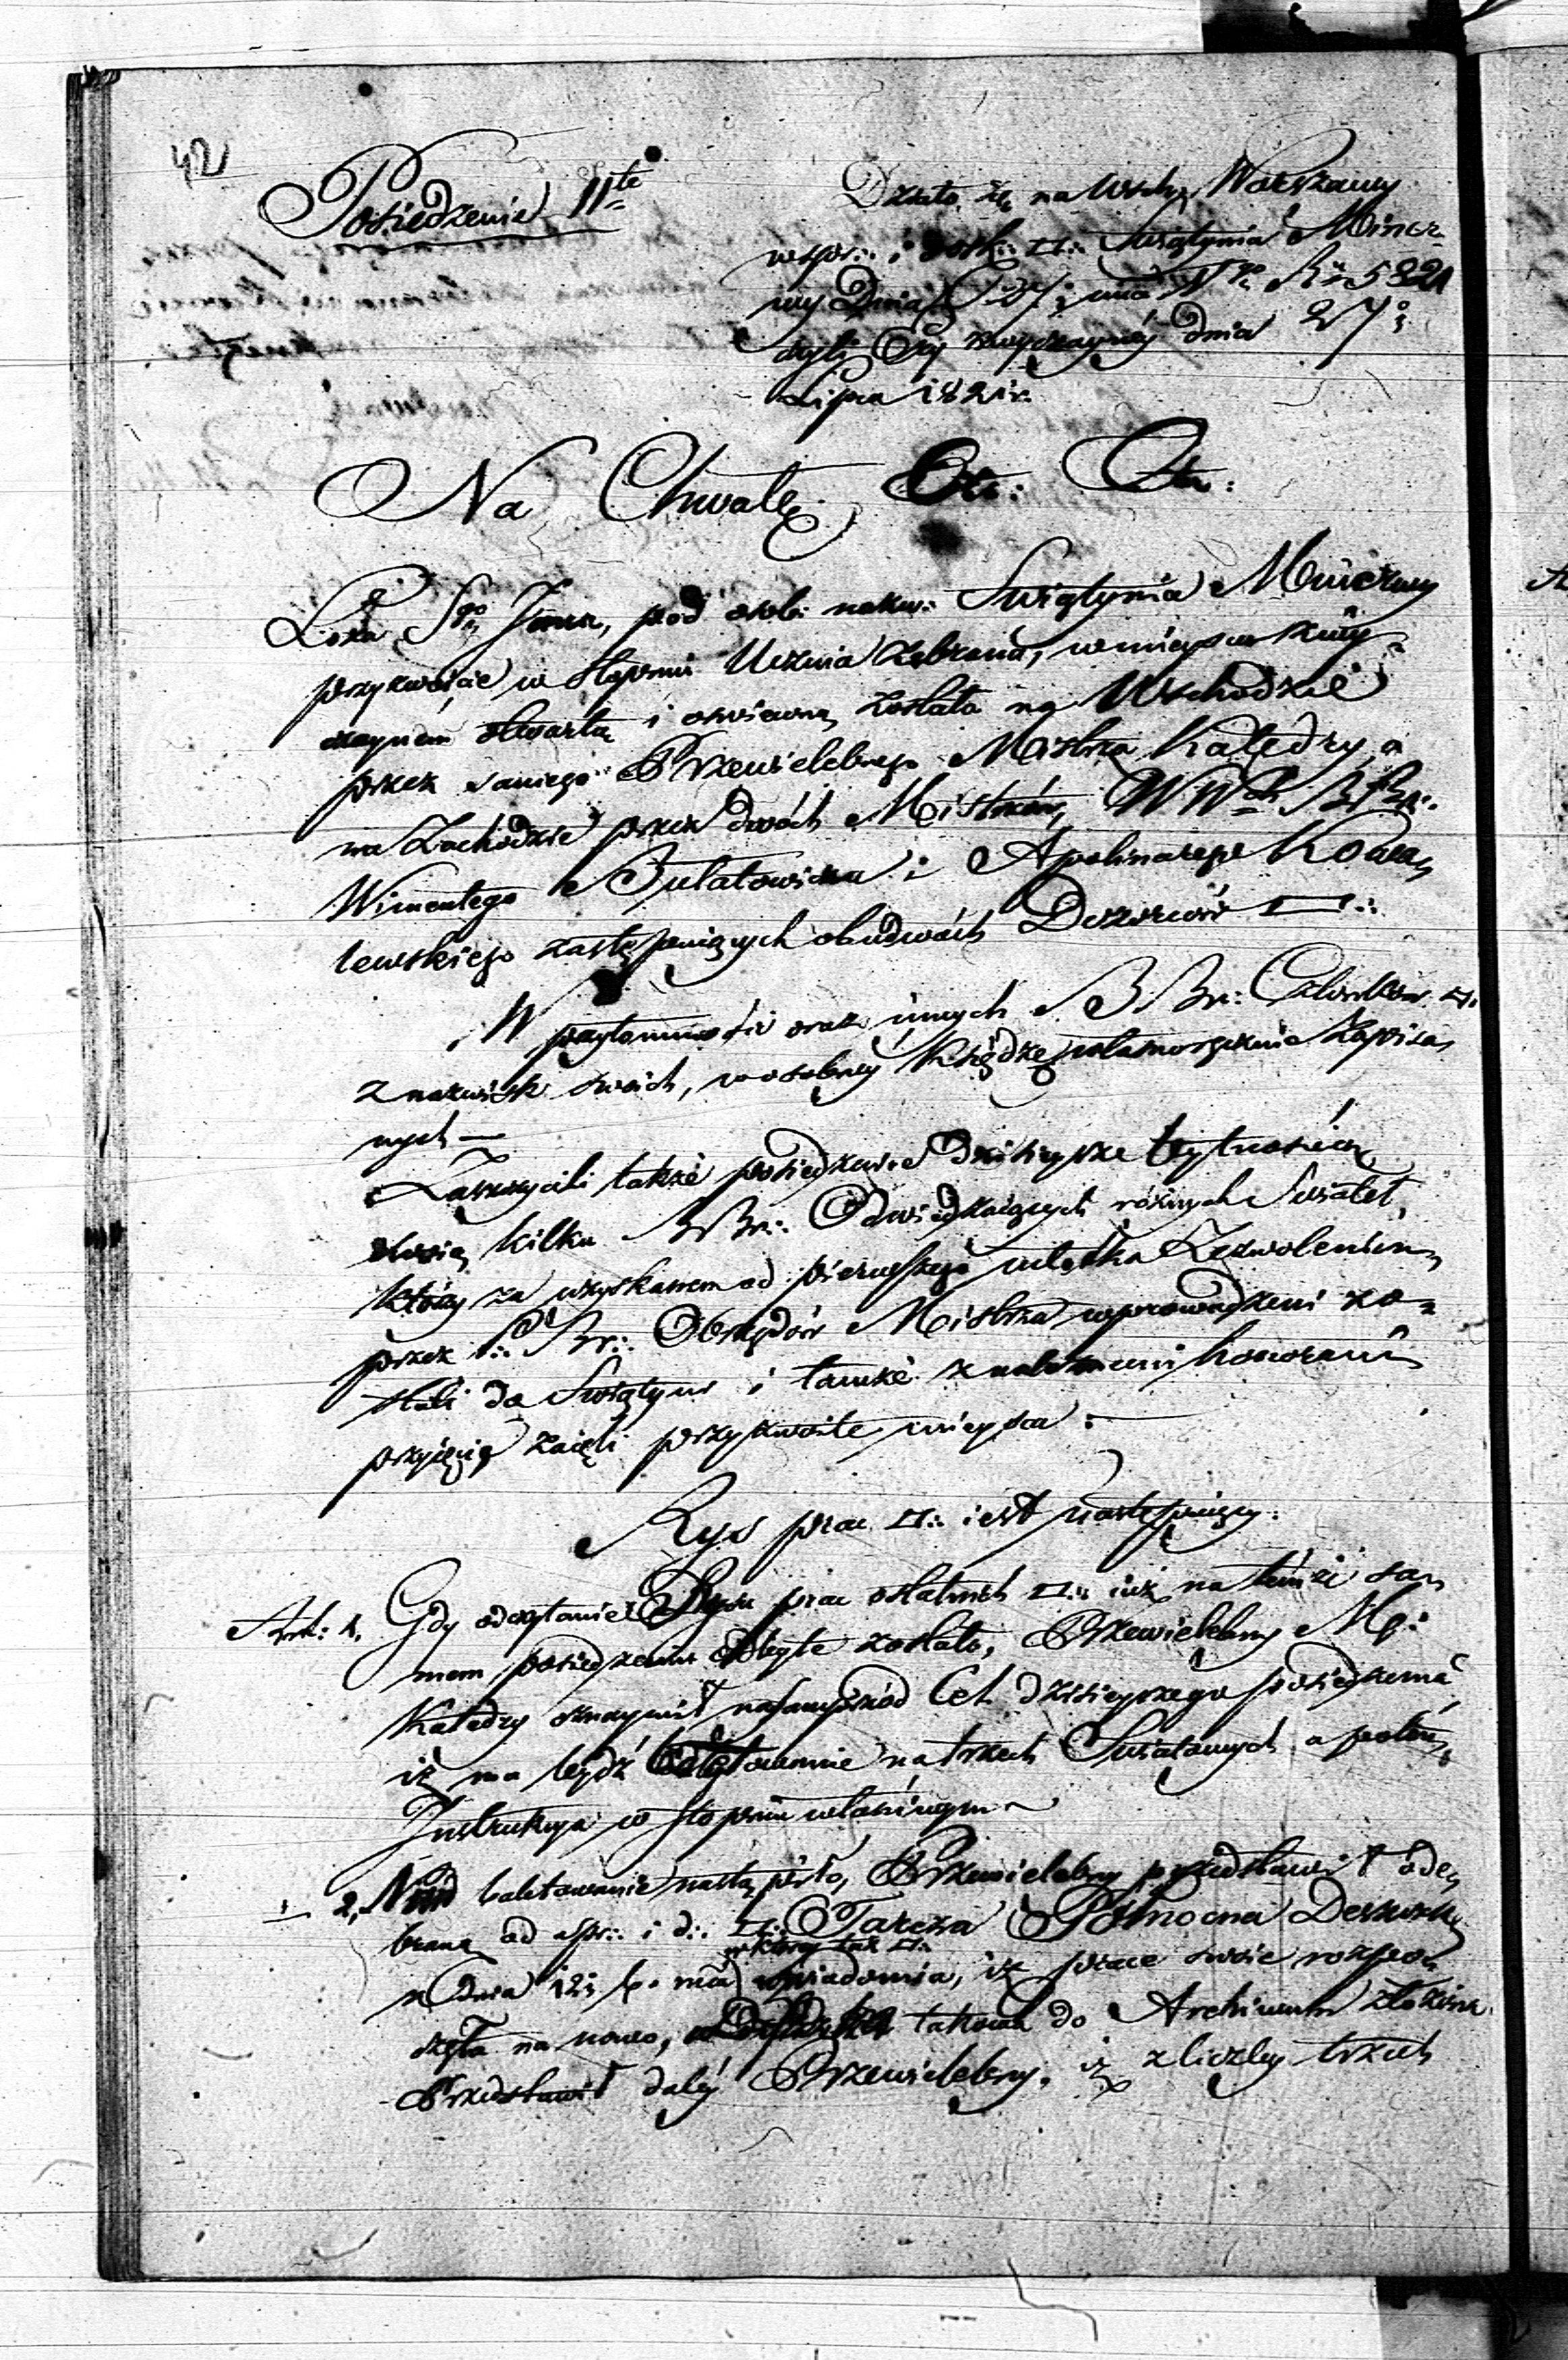 42
Posiedzenie 11te
Działo się na Wscho. Warszawy
w spr:. i dosk:. □:. Swiątynia Miner-
wy Dnia 27; mca Vgo R:. 5821
czyli Ery zwyczayney dnia 27;
Lipca 1821 r.
Na Chwałę
Loża Sgo Jana, pod osob: nazw: Swiątynia Minerwy
przyzwoicie w stopniu Ucznia zebrana, w mieyscu zwy-
czaynem otwartą i oswieconą została na Wschodzie
przez samego Przewielebnego Mistrza Katedry, a
na Zachodzie przez dwóch Mistrzów, WWch BBr:.
Wincentego Bułatowicza i Apolinarego Kowa-
lewskiego zastępuiących obudwóch Dozorców □:.
W przytomności oraz innych BBr:. Członków □:.
z nazwisk swoich, w osobney Księdze własnoręcznie zapisa-
nych —
Zaszczycili także posiedzenie dzisieysze bytnością
swoią kilku BBr:. Odwiedzaiących różnych Swiateł,
którzy za uzyskanem od pierwszego młotka Zezwoleniem
przez Br:. Obrzędów Mistrza wprowadzeni zo-
stali do Swiątyni i tamże z należnemi honorami
przyięci zaięli przyzwoite mieysca :
Rys prac □:. iest następuiący:
Art: 1. Gdy odczytanie Rysu prac ostatnich □:. iuż na temże sa-
mem posiedzeniu odbyte zostało, Przewielebny M:
Katedry oznaymił nasamprzód Cel dzisieyszego posiedzenia
iż ma bydź balotowanie na trzech Swiatowych a potem
Instrukcya w stopniu właściwym
2, Nim balotowanie nastąpiło, Przewielebny przedstawił ode-
braną od spr:. i d:. □:. Tarcza Północna Deskę
z Dnia 12; b. mca w ktorey taż □:. uwiadomia, iż prace swoie rozpo-
częła na nowo, takowa do Archiwum złożona.
Przedstawił daley Przewielebny, iż z liczby trzech